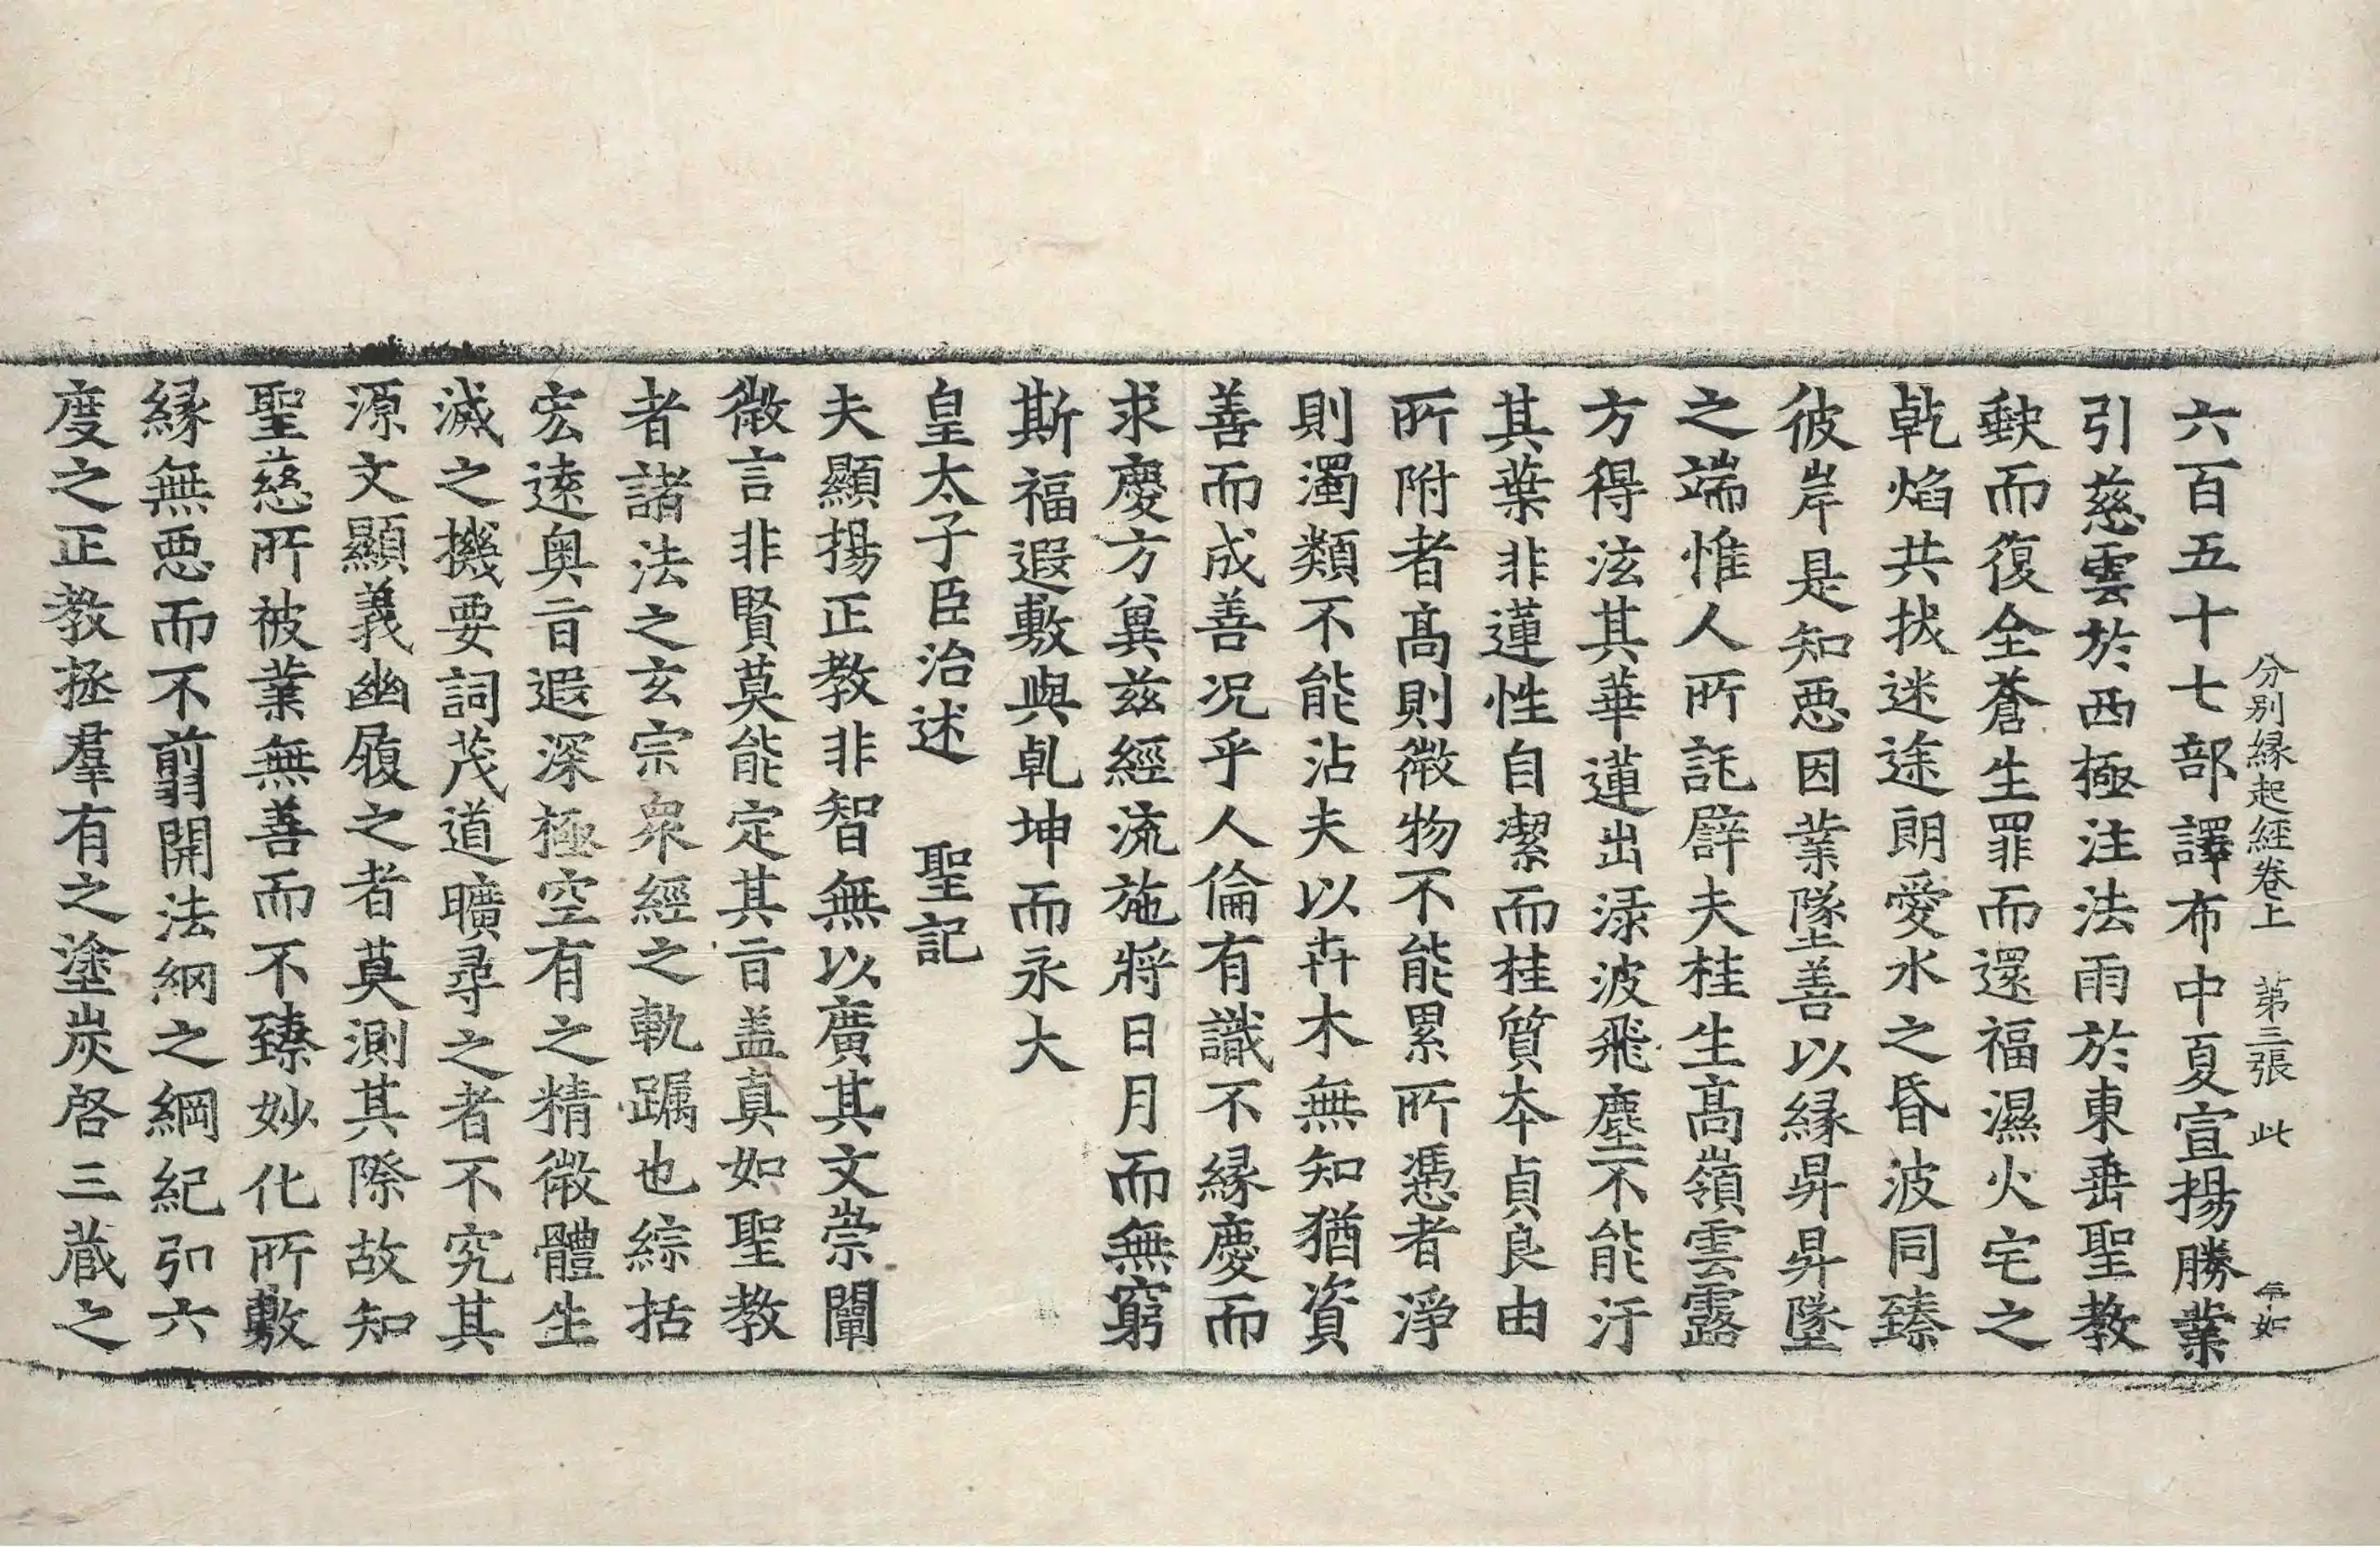 分別縁起經卷上　第三張　此　年如
六百五十七部譯布中夏宣揚勝業
引慈雲於西極注法雨於東垂聖教
缺而復全蒼生罪而還福濕火宅之
乾焰共拔迷途朗愛水之昏波同臻
彼岸是知惡因業墜善以縁昇昇墜
之端惟人所託譬夫桂生髙嶺雲露
方得泫其華蓮出渌波飛塵不能汙
其葉非蓮性自潔而桂質本貞良由
所附者髙則微物不能累所憑者淨
則濁類不能沾夫以卉木無知猶資
善而成善況乎人倫有識不縁慶而
求慶方兾兹經流施將日月而無窮
斯福遐敷與乹坤而永大
皇太子臣治述　聖記
夫顯揚正教非智無以廣其文崇闡
微言非賢莫能定其㫖盖真如聖教
者諸法之玄宗衆經之軌躅也綜括
宏逺奥㫖遐深極空有之精微體生
滅之機要詞茂道曠尋之者不究其
源文顯義幽履之者莫測其際故知
聖慈所被業無善而不臻妙化所敷
縁無惡而不翦開法網之綱紀弘六
度之正教拯羣有之塗炭啓三蔵之